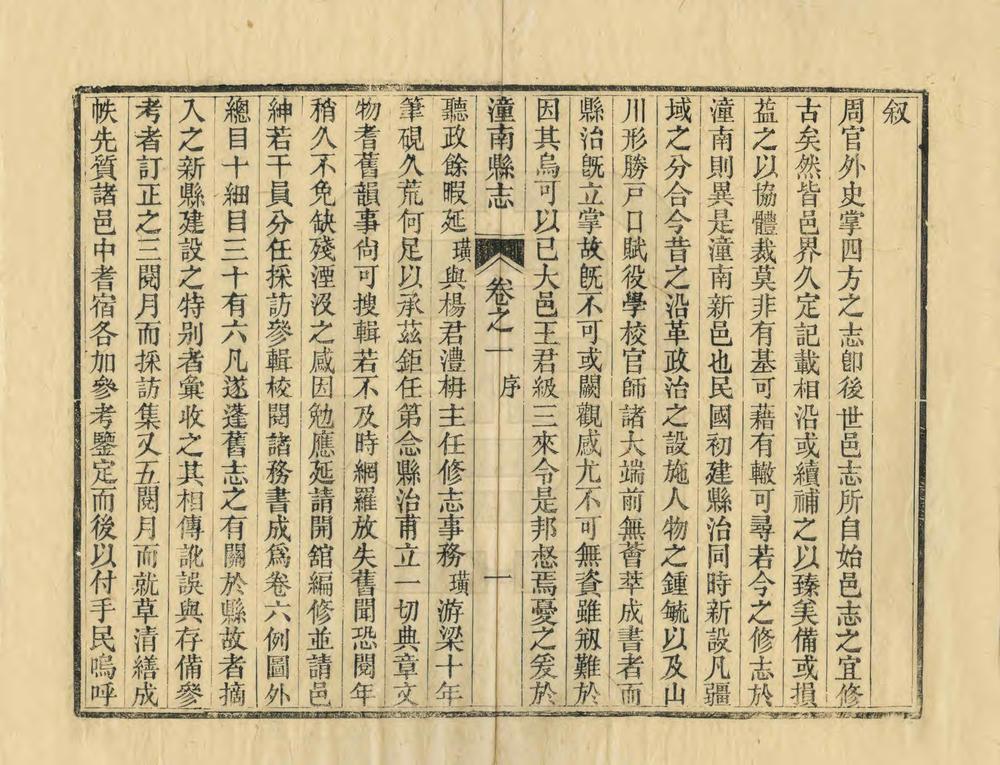 叙
周官外史掌四方之志卽後世邑志所自始邑志之宜修
古矣然皆邑界久定記載相沿或續補之以臻美備或損
益之以協體裁莫非有基可藉有轍可尋若今之修志於
潼南則異是潼南新邑也民國初建縣治同時新設凡疆
域之分合今昔之沿革政治之設施人物之鍾毓以及山
川形勝戸口賦役學校官師諸大端前無薈萃成書者而
縣治旣立掌故旣不可或闕觀感尤不可無資雖剏難於
因其烏可以已大邑王君級三來令是邦惄焉憂之爰於
潼南縣志 卷之一 序 一
聽政餘暇延璜與楊君灃枬主任修志事務璜游梁十年
筆硯久荒何足以承茲鉅任第念縣治甫立一切典章文
物耆舊韻事尙可搜輯若不及時網羅放失舊聞恐閱年
稍久不免缺殘湮沒之感因勉應延請開舘編修並請邑
紳若干員分任採訪參輯校閱諸務書成爲卷六例圖外
總目十細目三十有六凡遂蓬舊志之有關於縣故者摘
入之新縣建設之特别者彙收之其相傳訛誤與存備參
考者訂正之三閱月而採訪集又五閱月而就草清繕成
帙先質諸邑中耆宿各加參考鑒定而後以付手民嗚呼